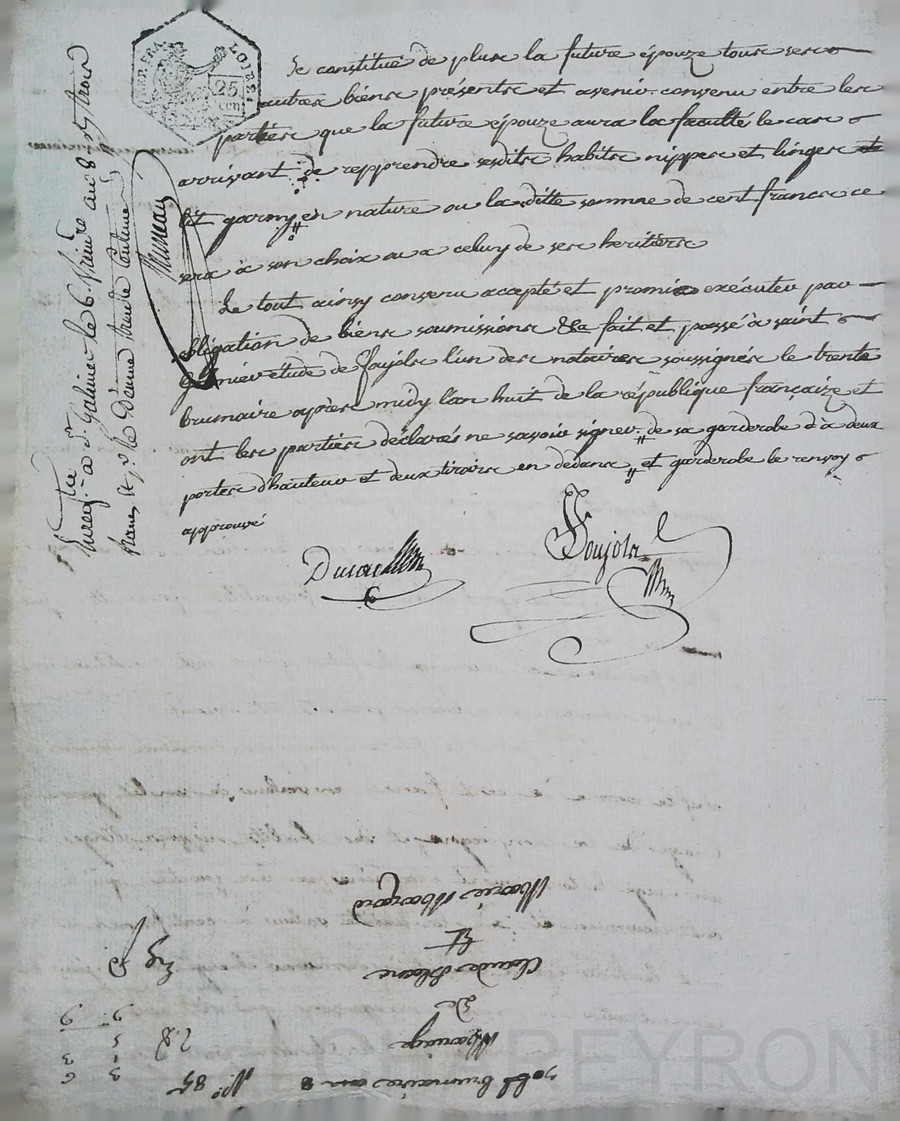 REP. FRA.
LOIRE
25
cen.
Se constitue de plus la future épouze tous ses
autres biens présents et avenir. convenu entre les
parties que la future épouze aura la faculté le cas
arrivant de repprendre sesdits habits nippes et linges et
lit garny en nature ou laditte somme de cent francs ce
sera à son choix ou a celuy de ses heritiers
Le tout ainsy convenu accepté et promis exécuter par
obligation de biens soumissions &a fait et passé à saint
étude de Foujols l'un des notaires soussignés le trente
brumaire après midy l'an huit de la république françaize et
ont les parties déclarés ne savoir signer. de sa garderobe à deux
portes d'hauteur et deux tiroirs en dedans, et garderobe le renvoy
approuvé
Foujols
Enregtré à St Galmier le 6 frimre an 8 reçu trois
francs le Décime trente centimes
30 brumaire an 8
No. 85
Mariage
De
Claude Blanc
Et
Marie